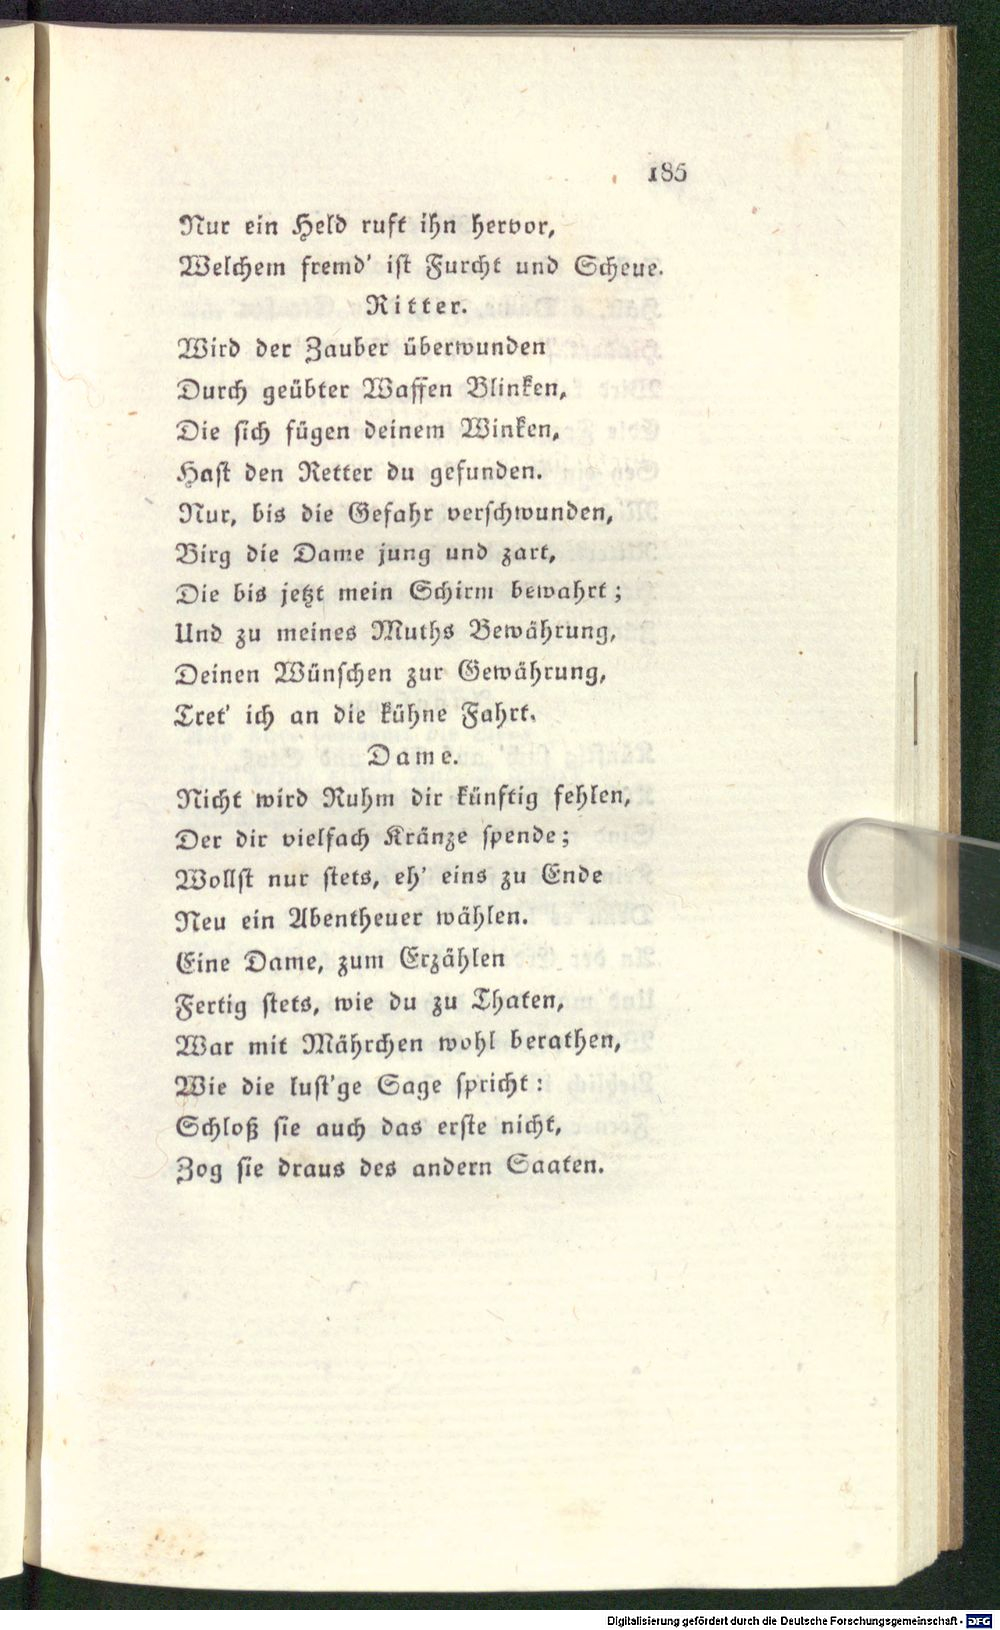 185
Nur ein Held ruft ihn hervor,
Welchem fremd' ist Furcht und Scheue.
Ritter.
Wird der Zauber überwunden
Durch geübter Waffen Blinken,
Die sich fügen deinem Winken,
Hast den Retter du gefunden.
Nur, bis die Gefahr verschwunden,
Birg die Dame jung und zart,
Die bis jetzt mein Schirm bewahrt;
Und zu meines Muths Bewährung,
Deinen Wünschen zur Gewährung,
Tret' ich an die kühne Fahrt.
Dame.
Nicht wird Ruhm dir künftig fehlen,
Der dir vielfach Kränze spende;
Wollst nur stets, eh' eins zu Ende
Neu ein Abentheuer wählen.
Eine Dame, zum Erzählen
Fertig stets, wie du zu Thaten,
War mit Mährchen wohl berathen,
Wie die lust'ge Sage spricht:
Schloß sie auch das erste nicht,
Zog sie draus des andern Saaten.
Digitalisierung gefördert durch die Deutsche Forschungsgemeinschaft - DFG